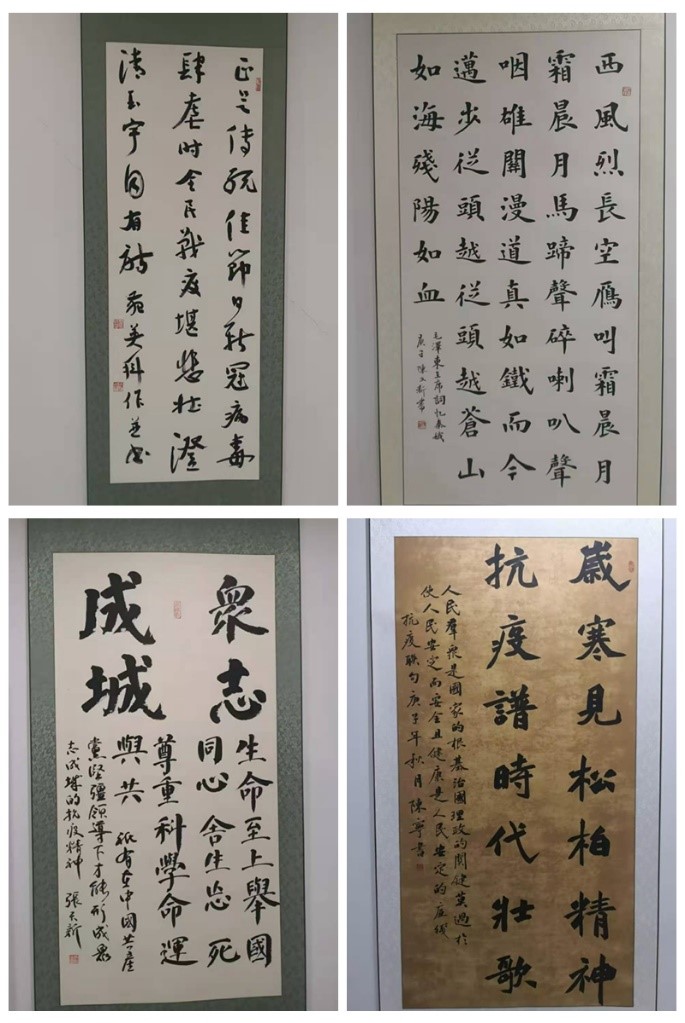 正是傳統佳節日新冠病毒
肆虐時全民戰疫堪悲壯澄
清玉宇固有
美科作并书
西風烈長空雁叫霜晨月
霜晨月馬蹄聲碎喇叭聲
咽雄關漫道真如鐵而今
邁步從頭越從頭越蒼山
如海殘陽如血
毛澤東主席詞忆秦娥
庚子陳文新書
眾志
成城
生命至上舉國
同心舍生忘死
尊重科學命運
與共 祇有在中國共產
黨堅彊領導下才能形成眾
志成城的抗疫精神 張天新
歲寒見松柏精神
抗疫譜時代壯歌
人民羣衆是國家的根基治國理政的関健莫過於
使人民安定而安全且健康是人民安定的
抗疫聯句庚子年秋月陳寧書